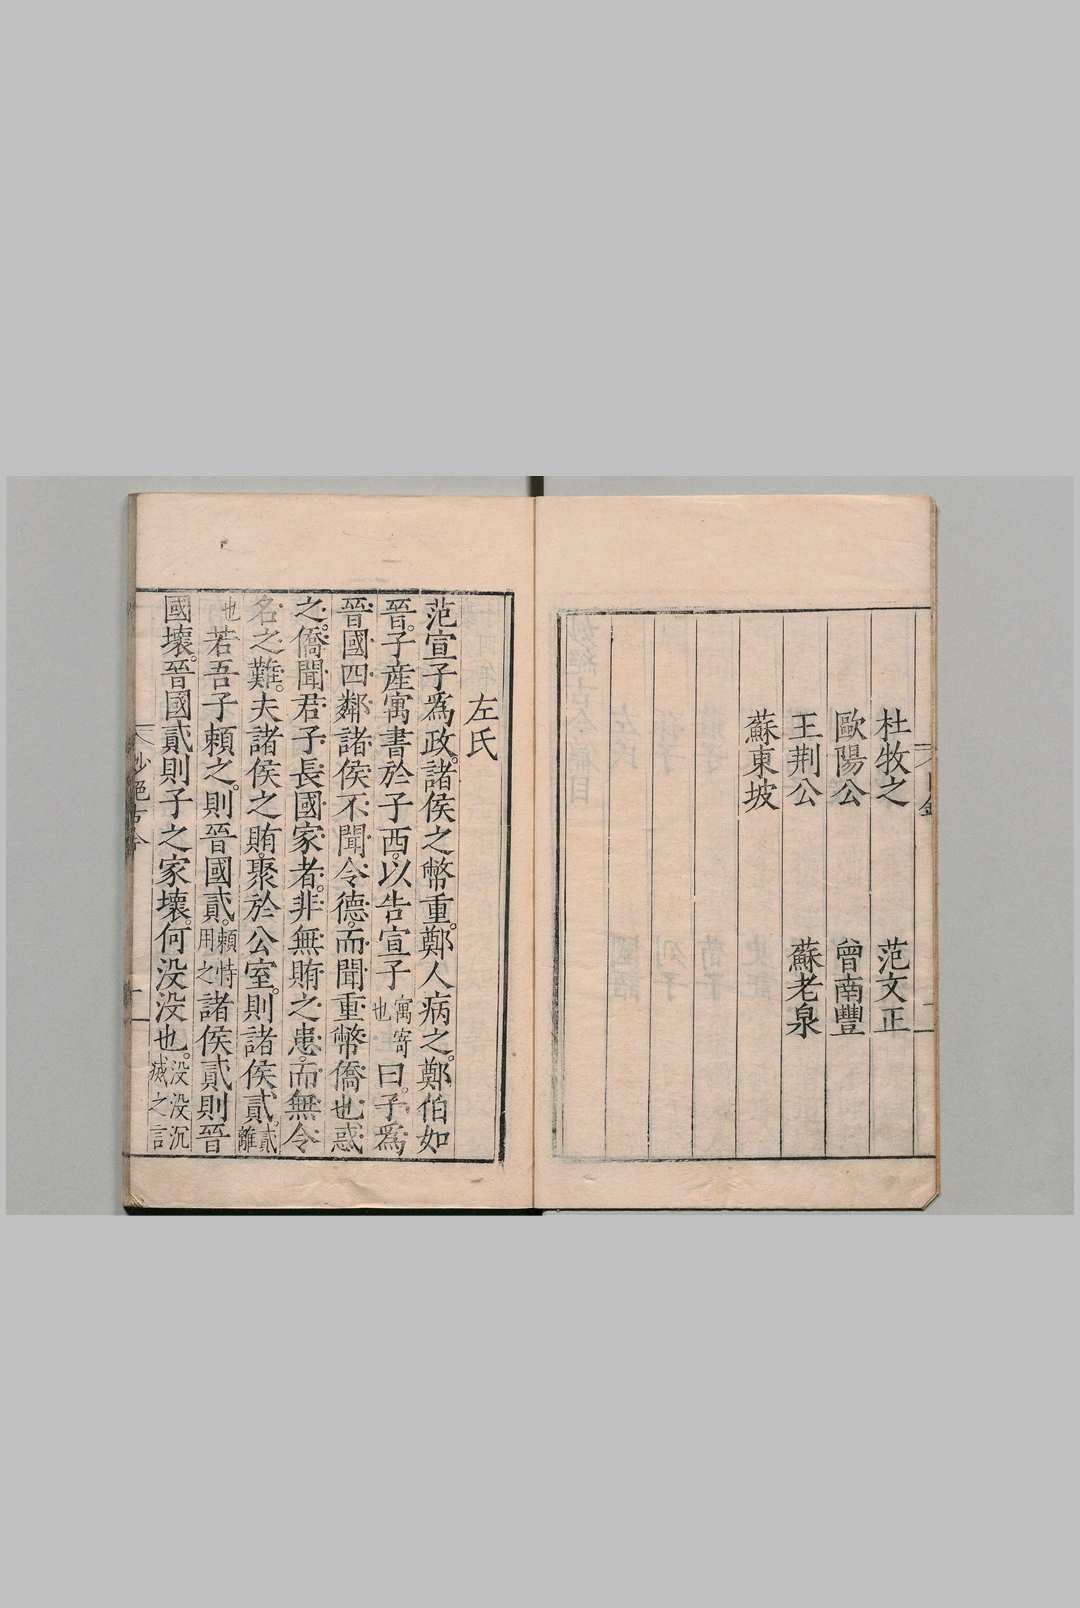 杜牧之　范文正
歐陽公　曾南豐
王荆公　蘇老泉
蘇東坡
左氏
范宣子爲政。諸侯之幣重。鄭人病之。鄭伯如
晉。子産寓書於子西。以告宣子寓寄也曰。子爲
晉國四鄰諸侯不聞令德。而聞重幣僑也惑
之。僑聞君子長國家者。非無賄之患。而無令
名之難。夫諸侯之賄。聚於公室。則諸侯貳。貳離
也若吾子頼之。則晉國貳。頼恃用之諸侯貳則晉
國壞。晉國貳則子之家壞。何没没也。没没沉滅之言
妙絶古今